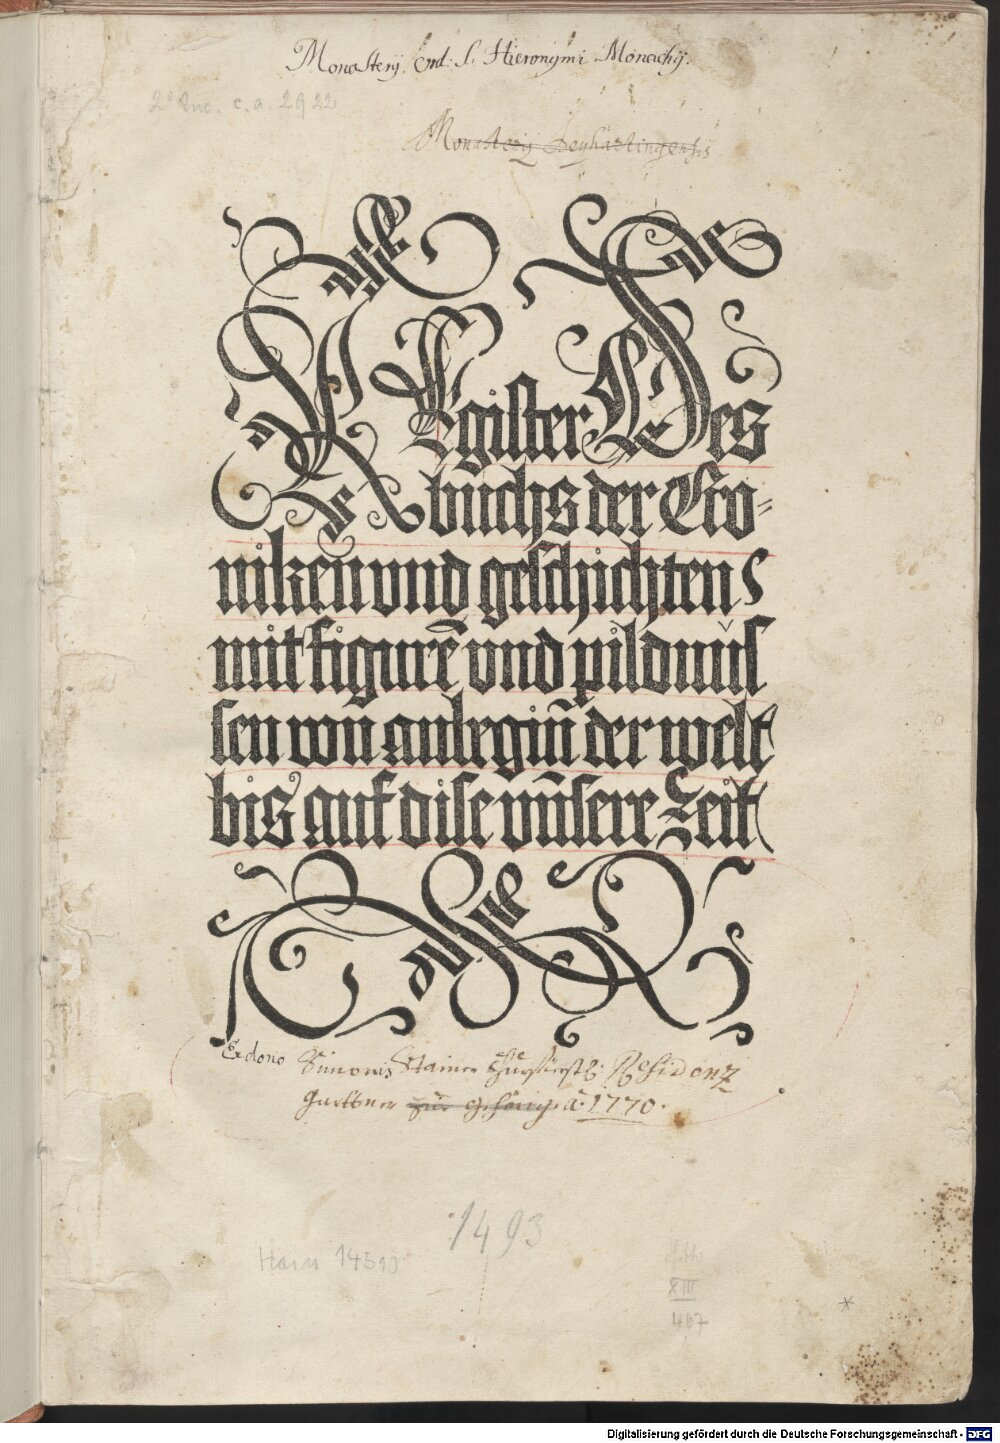 Monasterij Ord: S. Hieronymi Monachij.
2° Inc. c. a. 2922
Monasterij Beyhartingensis
REgister Des
buchs der Cro-
niken vnd geschichten
mit figurē vnd pildnus
sen von anbegiñ der welt
bis auf dise vñsere Zeit
Ex dono Simonis Stainer Residenz
garttner zur gehörig a: 1770.
1493
Hain 14510
XIII
467
*
Digitalisierung gefördert durch die Deutsche Forschungsgemeinschaft - DFG